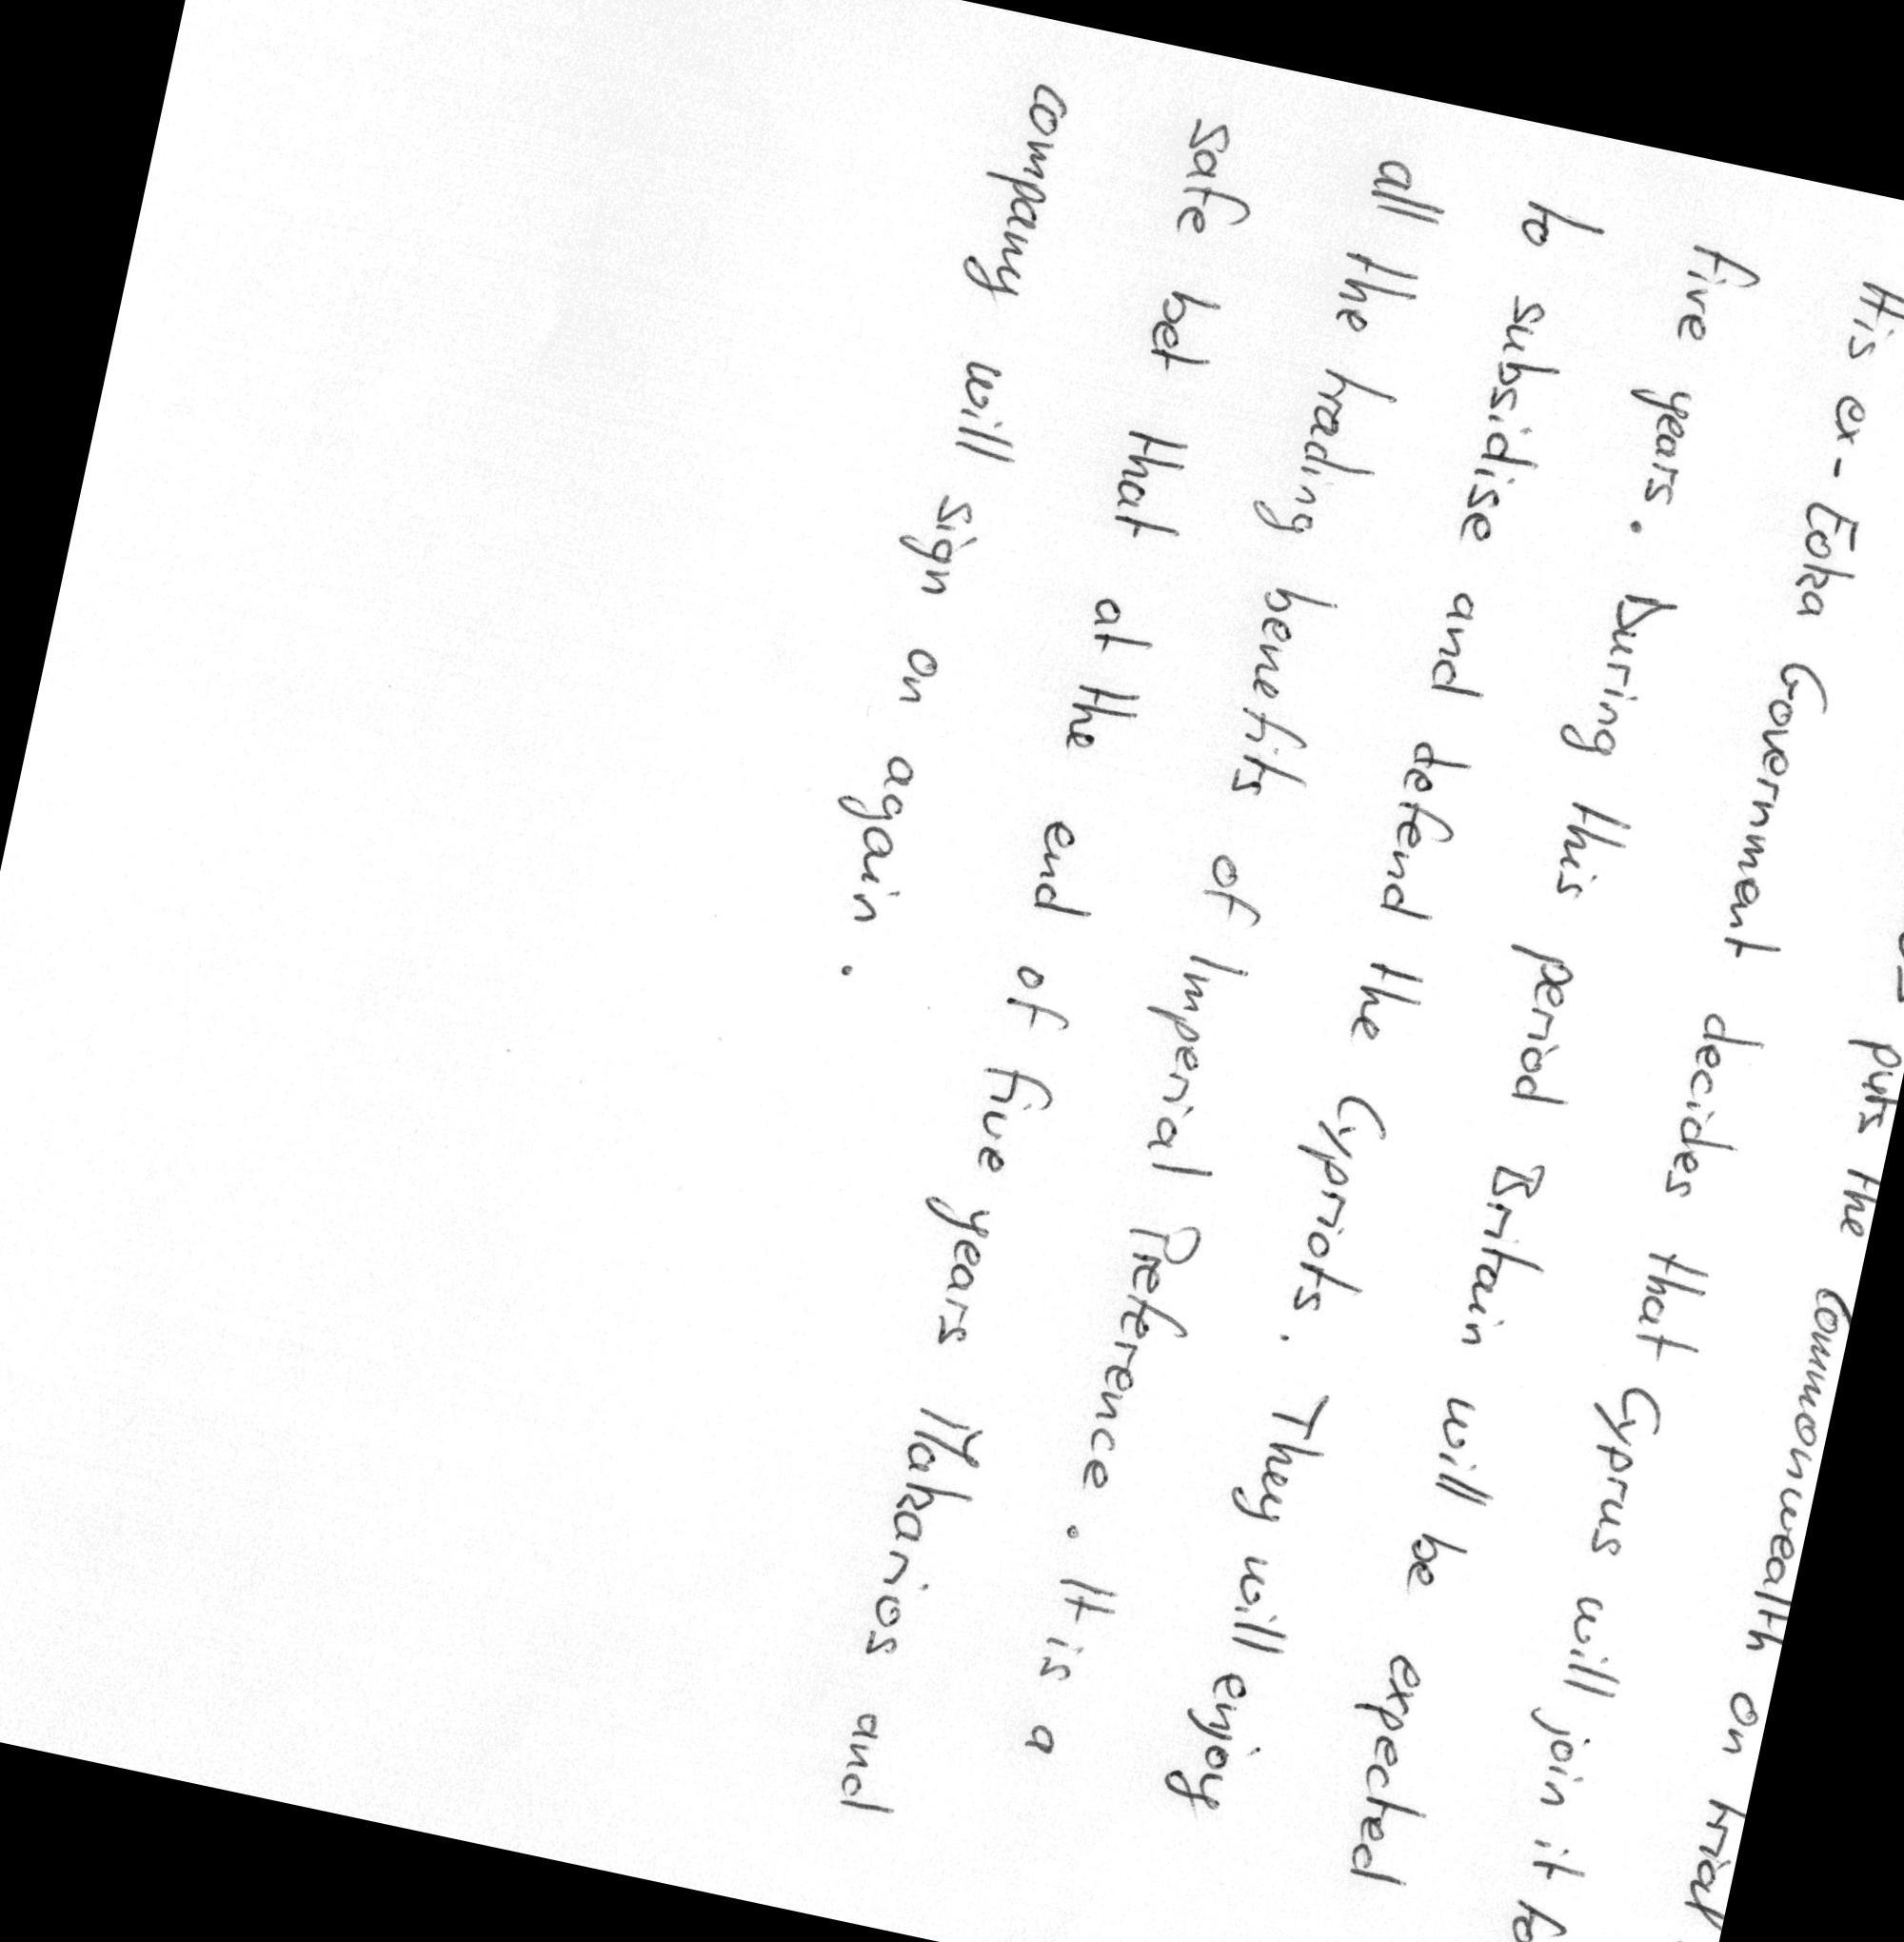 puts the Commonwealth on trial
His ex-Eoka Government decides that Cyprus will join it
five years. During this period Britain will be expected
to subsidise and defend the Cypriots. They will enjoy
all the trading benefits of Imperial Preference. It is a
safe bet that at the end of five years Makarios and
company will sign on again.